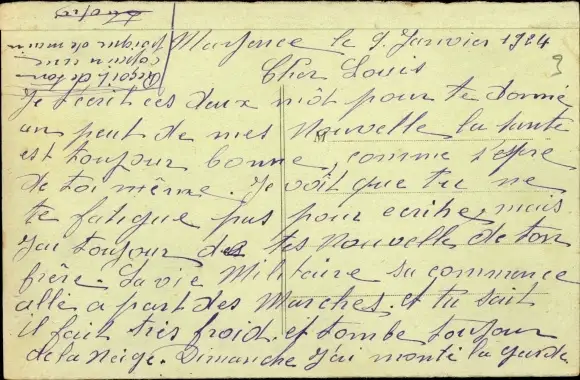 Mayence le 9 Janvier 1924
Cher Louis
Je t'écrit ces deux môt pour te donné
un peut de mes Nouvelle la santé
est toujour bonne, comme j'espre
de toi même. Je voît que tu ne
te fatigue pas pour ecrire, mais
J'ai toujour des tes Nouvelle de ton
frère. La vie Militaire sa commence
allé a part des Marches. et tu sait
il fait très froid. et tombe toujour
de la Neige. Dimanche J'ai monté la garde
Reçoit de ton
copain une
poigné de main
3
M